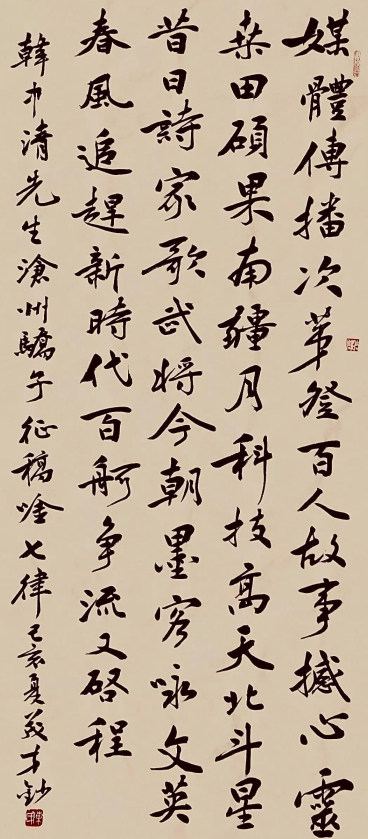 媒體傳播次第登百人故事撼心靈
桑田碩果南疆月科技高天北斗星
昔日詩家歌武將今朝墨客咏文英
春風追趕新時代百舸争流又啓程
韓清先生滄州驕子征稿唫七律己亥夏義才鈔